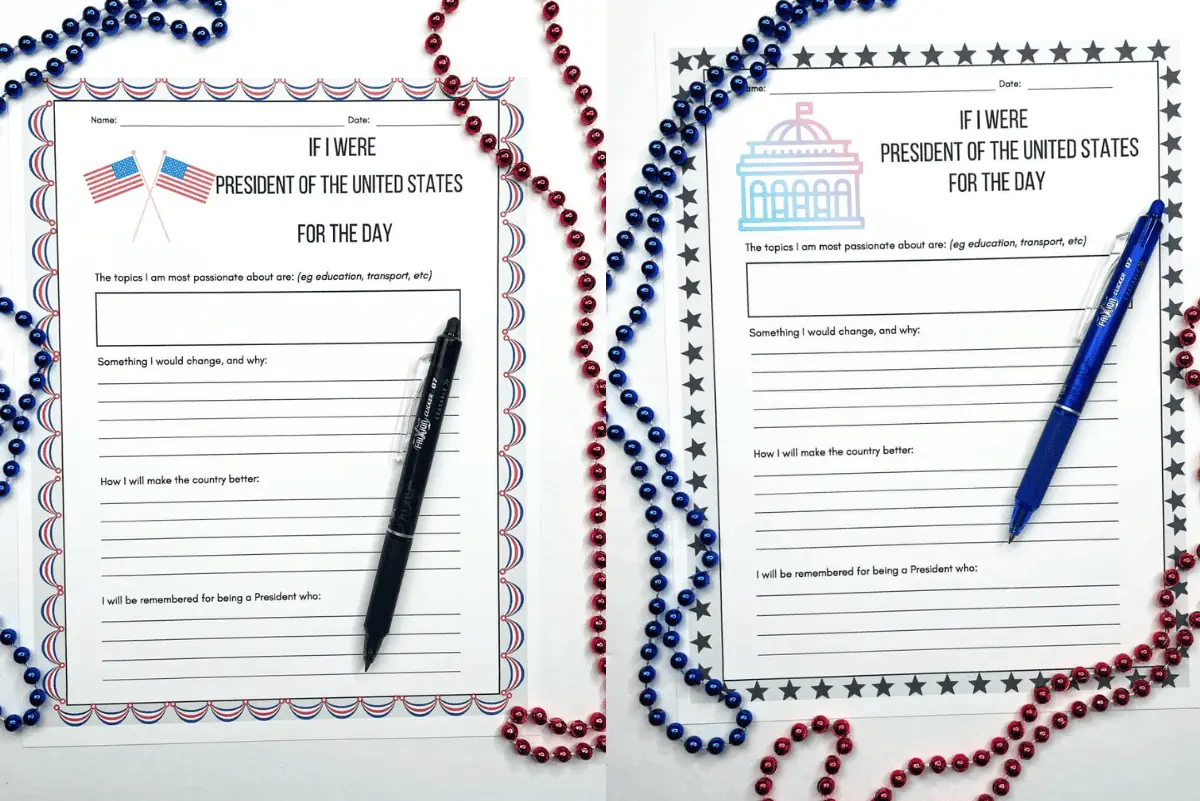 Name: Date:
IF I WERE
PRESIDENT OF THE UNITED STATES
FOR THE DAY
The topics I am most passionate about are: (eg education, transport, etc)
Something I would change, and why:
How I will make the country better:
I will be remembered for being a President who:
FRIXION CLICKER 07
ERASABLE
ame: Date:
IF I WERE
PRESIDENT OF THE UNITED STATES
FOR THE DAY
The topics I am most passionate about are: (eg education, transport, etc)
Something I would change, and why:
How I will make the country better:
I will be remembered for being a President who:
FRIXION CLICKER 07